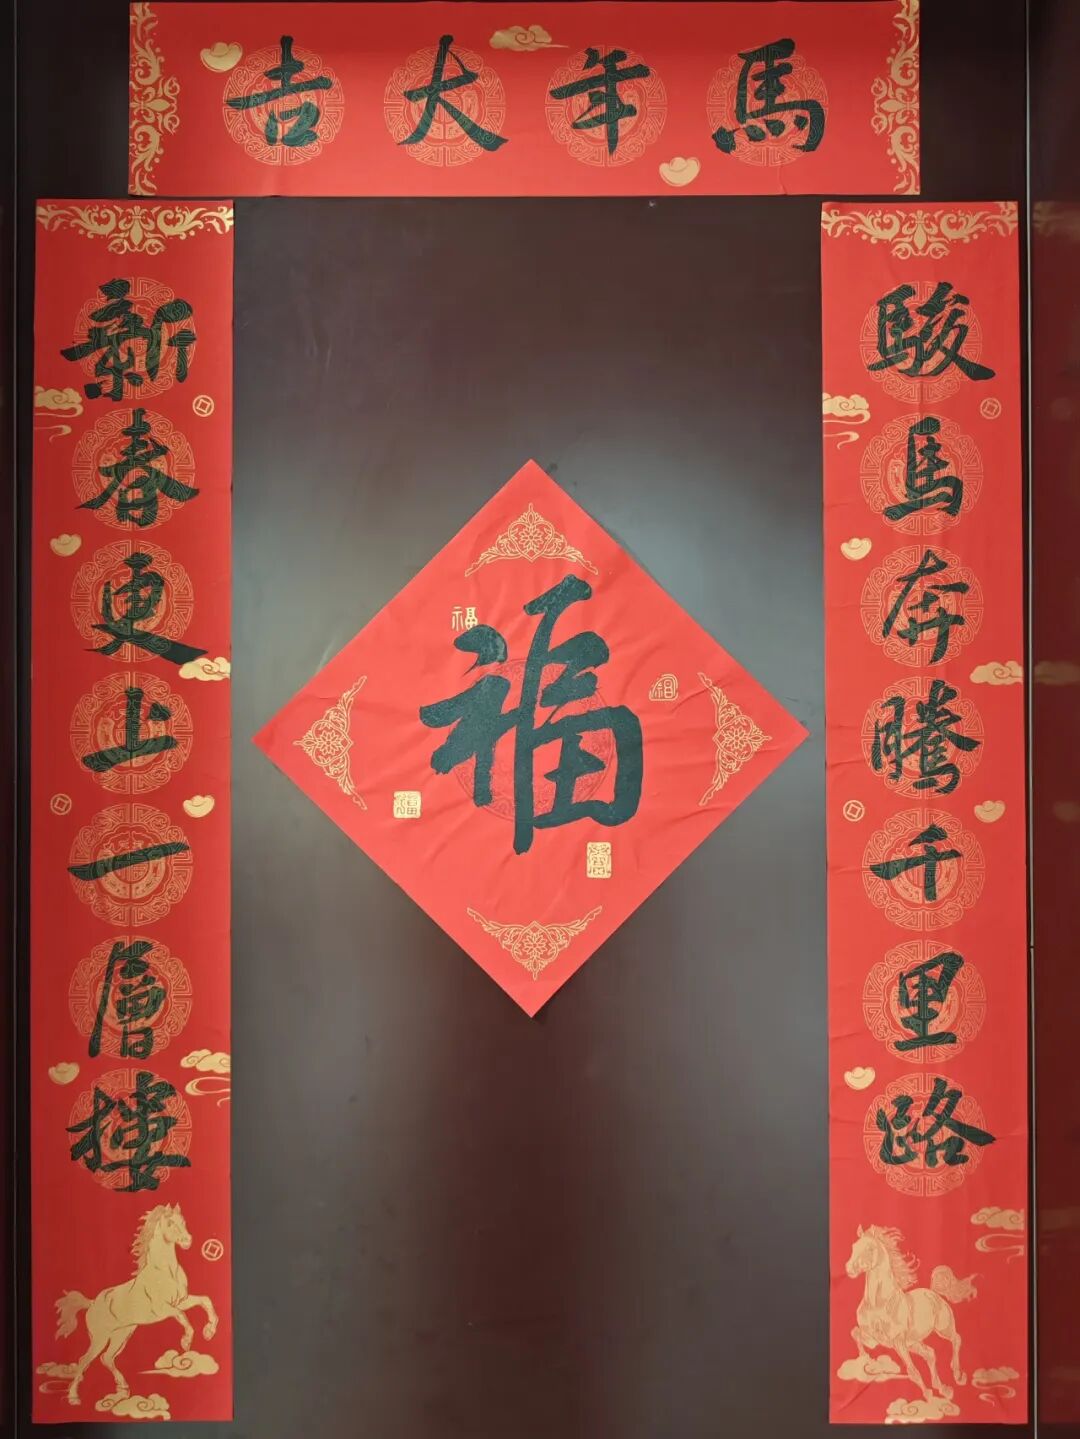 馬年大吉
駿馬奔騰千里路
新春更上一層樓
福
福
福